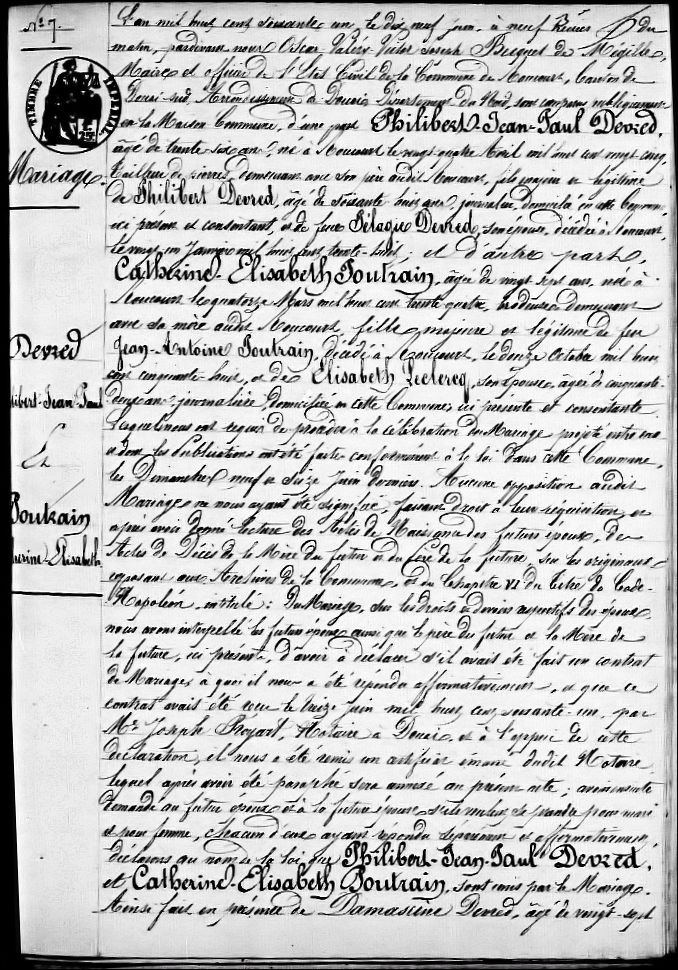 N° 7.
TIMBRE IMPÉRIAL
Mariage.
Devred
Jean Paul
Et
Poutrain
Elisabeth
L'an mil huit cent soixante un, le dix neuf juin, à neuf heures du
matin, pardevant nous Oscar Valéry Victor Joseph Becquet de Mégille,
Maire et officier de l'Etat Civil de la Commune de Roucourt, Canton de
Douai-sud, Arrondissement de Douai, Département du Nord, sont comparus publiquement
en la Maison Commune, d'une part Philibert-Jean-Paul Devred,
âgé de trente six ans, né à Roucourt le vingt quatre Avril mil huit cent vingt cinq,
tailleur de pierres, demeurant avec son père audit Roucourt, fils majeur et légitime
de Philibert Devred, âgé de soixante huit ans, journalier, domicilié en cette Commune,
ici présent et consentant, et de feue Pélagie Devred, son épouse, décédée à Roucourt,
le vingt un Janvier mil huit cent trente huit; et d'autre part,
Catherine-Elisabeth Poutrain, âgée de vingt sept ans, née à
Roucourt le quatorze Mars mil huit cent trente quatre, demeurant
avec sa mère audit Roucourt, fille majeure et légitime de feu
Jean-Antoine Poutrain, décédé à Roucourt, le douze Octobre mil huit
cent cinquante-huit, et de Elisabeth Leclercq, son épouse, âgée de cinquante-
deux ans, journalière, domiciliée en cette Commune, ici présente et consentante.
Lesquels nous ont requis de procéder à la célébration du Mariage projeté entre eux
et dont les Publications ont été faites conformément à la loi dans cette Commune,
les Dimanches neuf et seize Juin dernier. Aucune opposition audit
Mariage ne nous ayant été signifiée, faisant droit à leur réquisition, et
après avoir donné lecture des Actes de Naissance des futurs époux, des
Actes de Décès de la Mère du futur et du père de la future, sur les originaux
reposant aux Archives de la Commune, et du Chapitre VI du titre du Code-
Napoléon, intitulé: Du Mariage, sur les droits et devoirs respectifs des époux,
nous avons interpellé les futurs époux ainsi que le père du futur et la Mère de
la future, ici présents, d'avoir à déclarer s'il avait été fait un contrat
de Mariage, à quoi il nous a été répondu affirmativement, et que ce
contrat avait été reçu le treize Juin mil huit cent soixante-un, par
Me Joseph Proyart, Notaire à Douai, et à l'appui de cette
déclaration, il nous a été remis un certificat émané dudit Notaire
lequel après avoir été paraphé sera annexé au présent acte; avons ensuite
demandé au futur époux et à la future épouse s'ils veulent se prendre pour mari
et pour femme, chacun d'eux ayant répondu séparément et affirmativement,
déclarons au nom de la loi, que Philibert-Jean-Paul Devred,
et Catherine-Elisabeth Poutrain, sont unis par le Mariage.
Ainsi fait en présence de Damascène Devred, âgé de vingt-sept